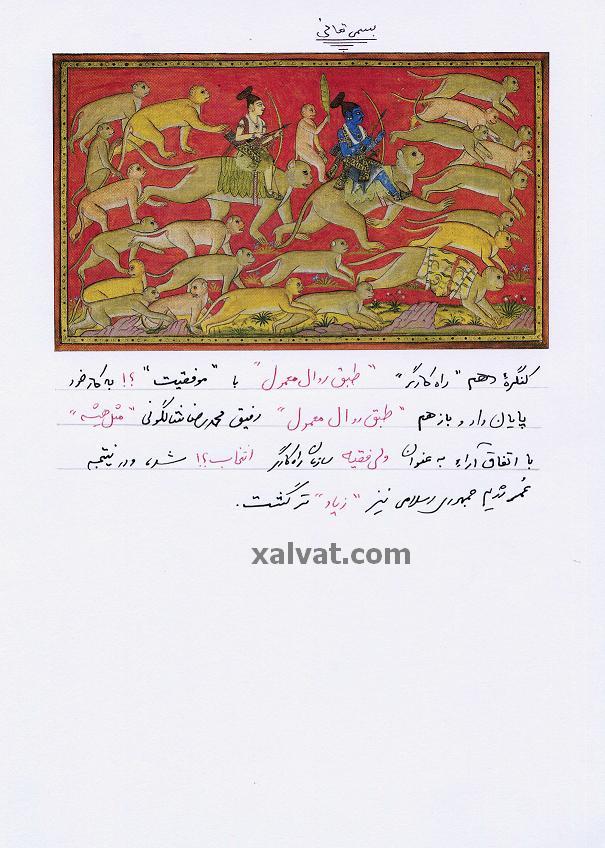 بسمی تعالی
کنگرهٔ دهم "راه کارگر" "طبق روال معمول" با "موفقیت" ؟! به کار خود
پایان داد و باز هم "طبق روال معمول" رفیق محمدرضا شالگونی "مثل همیشه"
با اتفاق آراء به عنوان ولی فقیه سازمان راه کارگر انتخاب ؟! شد، و در نتیجه
عُمر رژیم جمهوری اسلامی نیز "زیاد" تر گشت.
xalvat.com